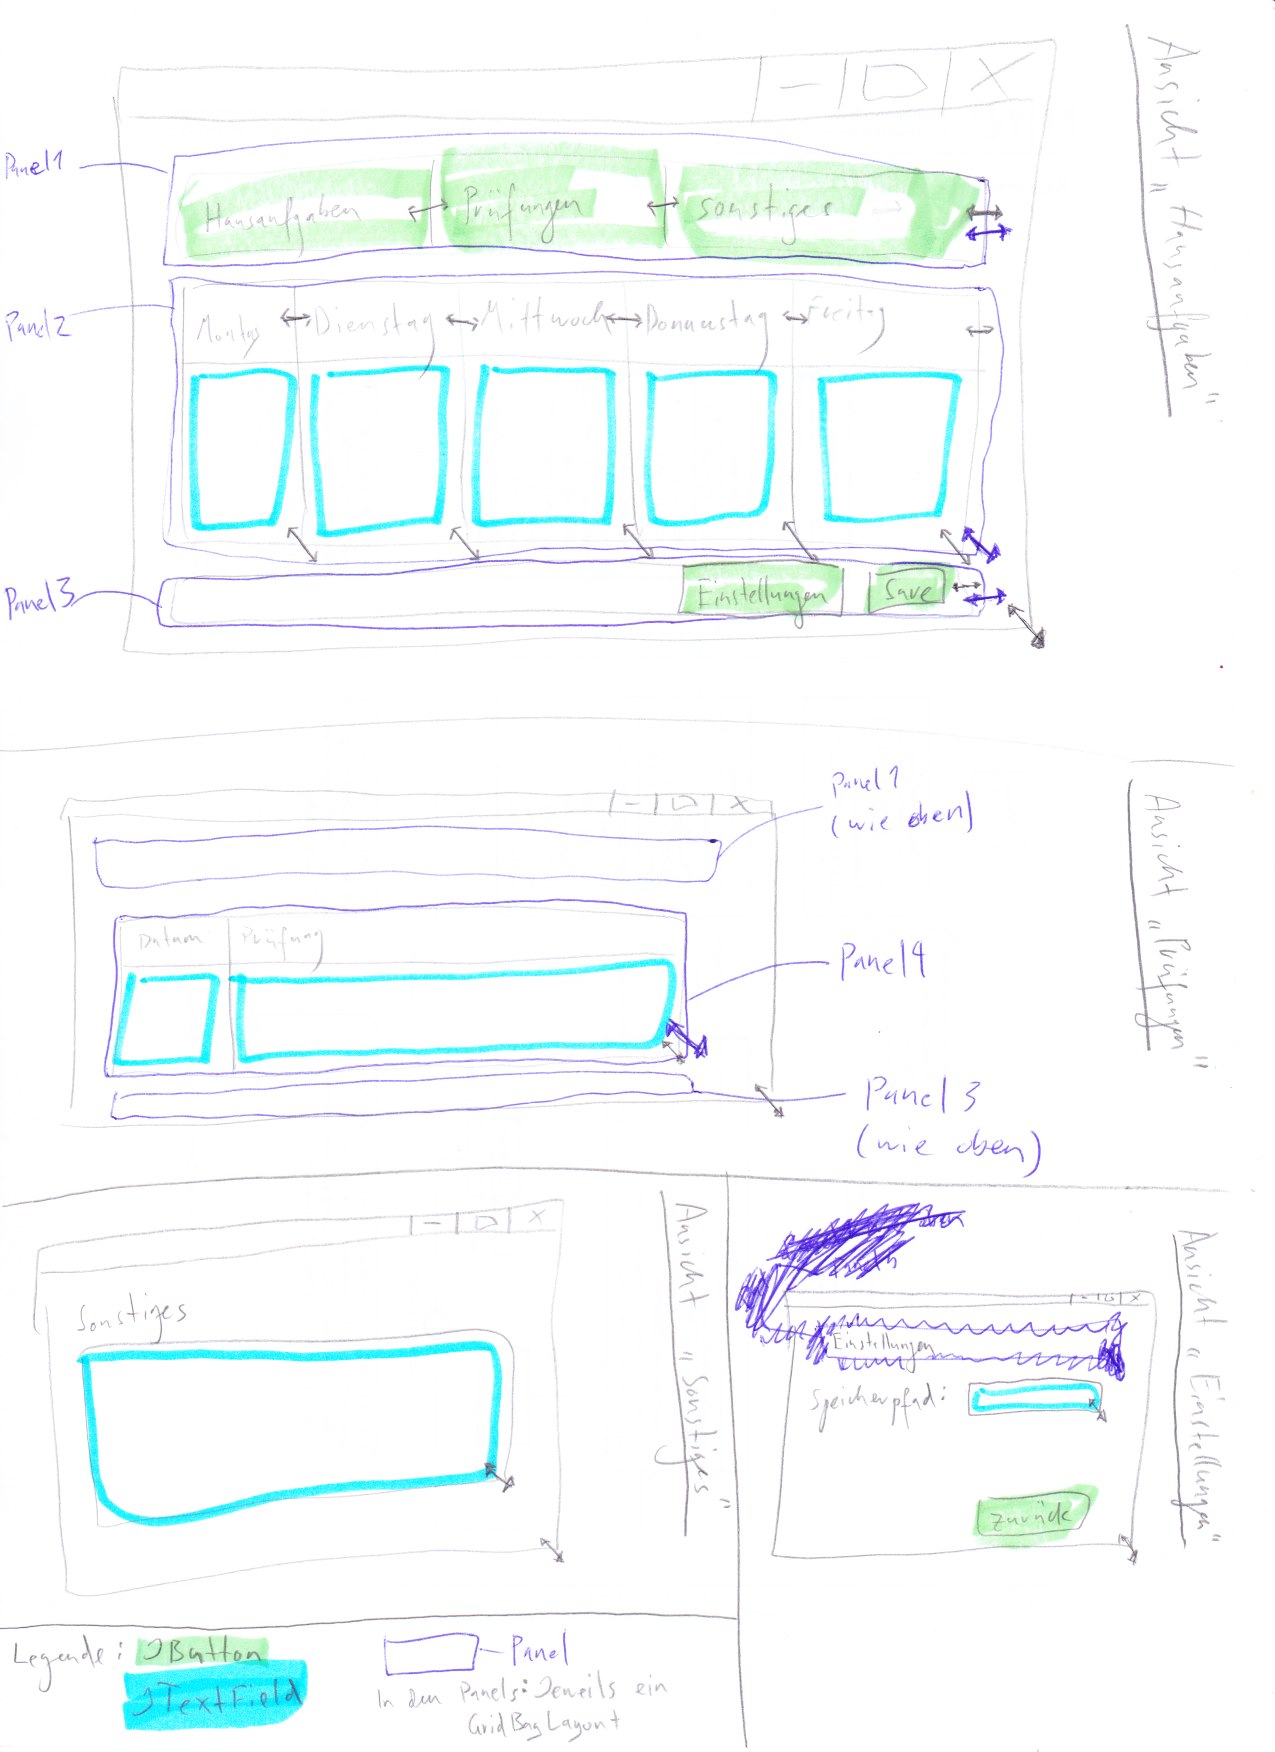 Ansicht „Hausaufgaben"
Panel1
Hausaufgaben
Prüfungen
sonstiges
Panel2
Montag
Dienstag
Mittwoch
Donnerstag
Freitag
Panel3
Einstellungen
Save
Ansicht „Prüfungen"
Panel1
(wie oben)
Datum
Prüfung
Panel4
Panel 3
(wie oben)
Ansicht „Sonstiges"
Sonstiges
Ansicht „Einstellungen"
Einstellungen
Speicherpfad:
zurück
Legende: JButton
JTextField
Panel
In den Panels: Jeweils ein
GridBagLayout